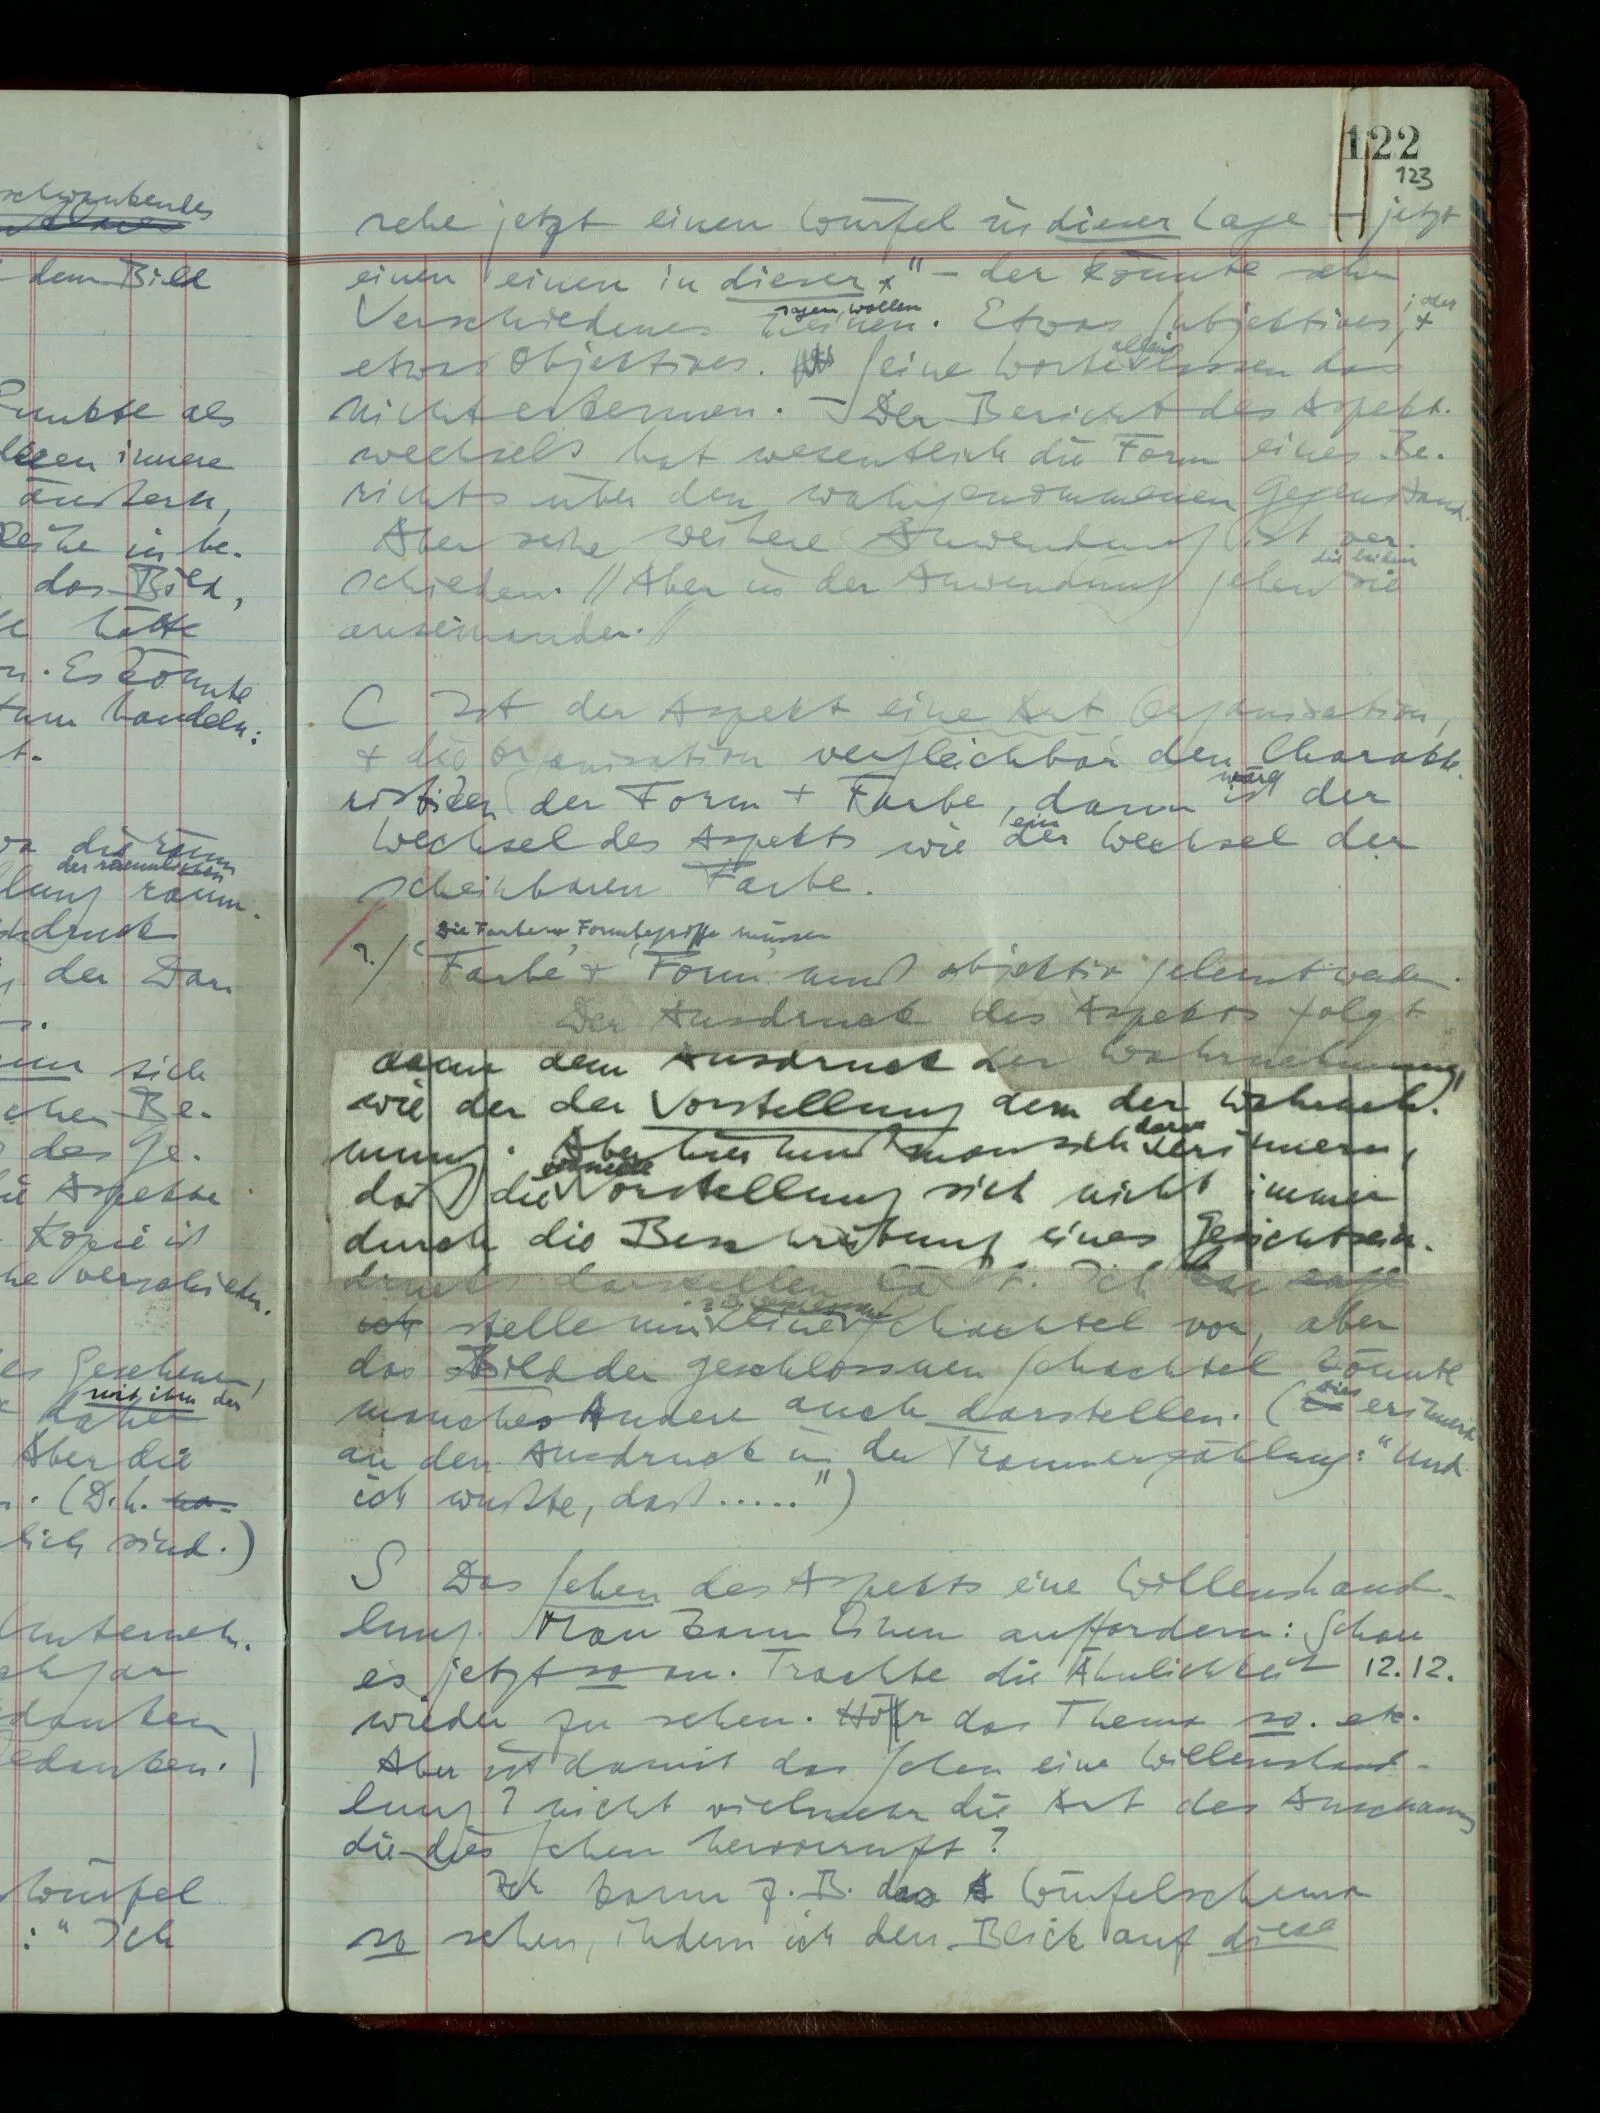 schwankendes
dem Bild
Punkte als
innere
ändern,
Reihe in be-
das Bild,
hätte
Es könnte
handeln:
der räumlichen
lung räum-
druck
der Dar
sich
chen Be-
des Ge-
Aspekte
Kopie ist
verschieden.
Gesehenen,
mit ihm der
daher
Aber die
(D.h.
lich sind.)
danken
edanken.)
Würfel
:“Ich
122
123
sehe jetzt einen Würfel in dieser Lage – jetzt
einen einen in dieser +” – der könnte sehr
sagen wollen ; oder
Verschiedenes meinen. Etwas Subjektives, +
allein
etwas Objektives. Seine Worte lassen das
nicht erkennen. – Der Bericht des Aspekt-
wechsels hat wesentlich die Form eines Be-
richts über den wahrgenommenen Gegenstand.
Aber seine weitere Anwendung ist ver-
die beiden
schieden. // Aber in der Anwendung gehen sie
auseinander. //
C Ist der Aspekt eine Art Organisation,
+ die Organisation vergleichbar den Charakte-
wäre
ristiken der Form + Farbe, dann ist der
ein
Wechsel des Aspekts wie der Wechsel der
scheinbaren Farbe.
Die Farben + Formbegriffe müssen
?/ ‘Farbe’ + ‘Form’ muß objektiv gelernt werden.
Der Ausdruck des Aspekts folgt
dann dem Ausdruck der Wahrnehmung,
wie der der Vorstellung dem der Wahrneh-
daran
mung. Aber hier muß man sich erinnern,
daß die Vorstellung sich nicht immer
durch die Beschreibung eines Gesichtsein-
drucks darstellen läßt. Ich sage
ich stelle mir eine Schachtel vor, aber
das Bild der geschlossnen Schachtel könnte
dies
manches Andere auch darstellen. ( erinnert
an den Ausdruck in der Traumerzählung: “Und
ich wußte, daß.....”)
S Das Sehen des Aspekts eine Willenshand-
lung. Man kann Einen auffordern: Schau
es jetzt so an. Trachte die Ähnlichkeit 12.12.
wieder zu sehen. Hör das Thema so. etc.
Aber ist damit das Sehen eine Willenshand-
lung? nicht vielmehr die Art des Anschauens
die dies Sehen hervorruft?
Ich kann z.B. das Würfelschema
so sehen, indem ich den Blick auf diese